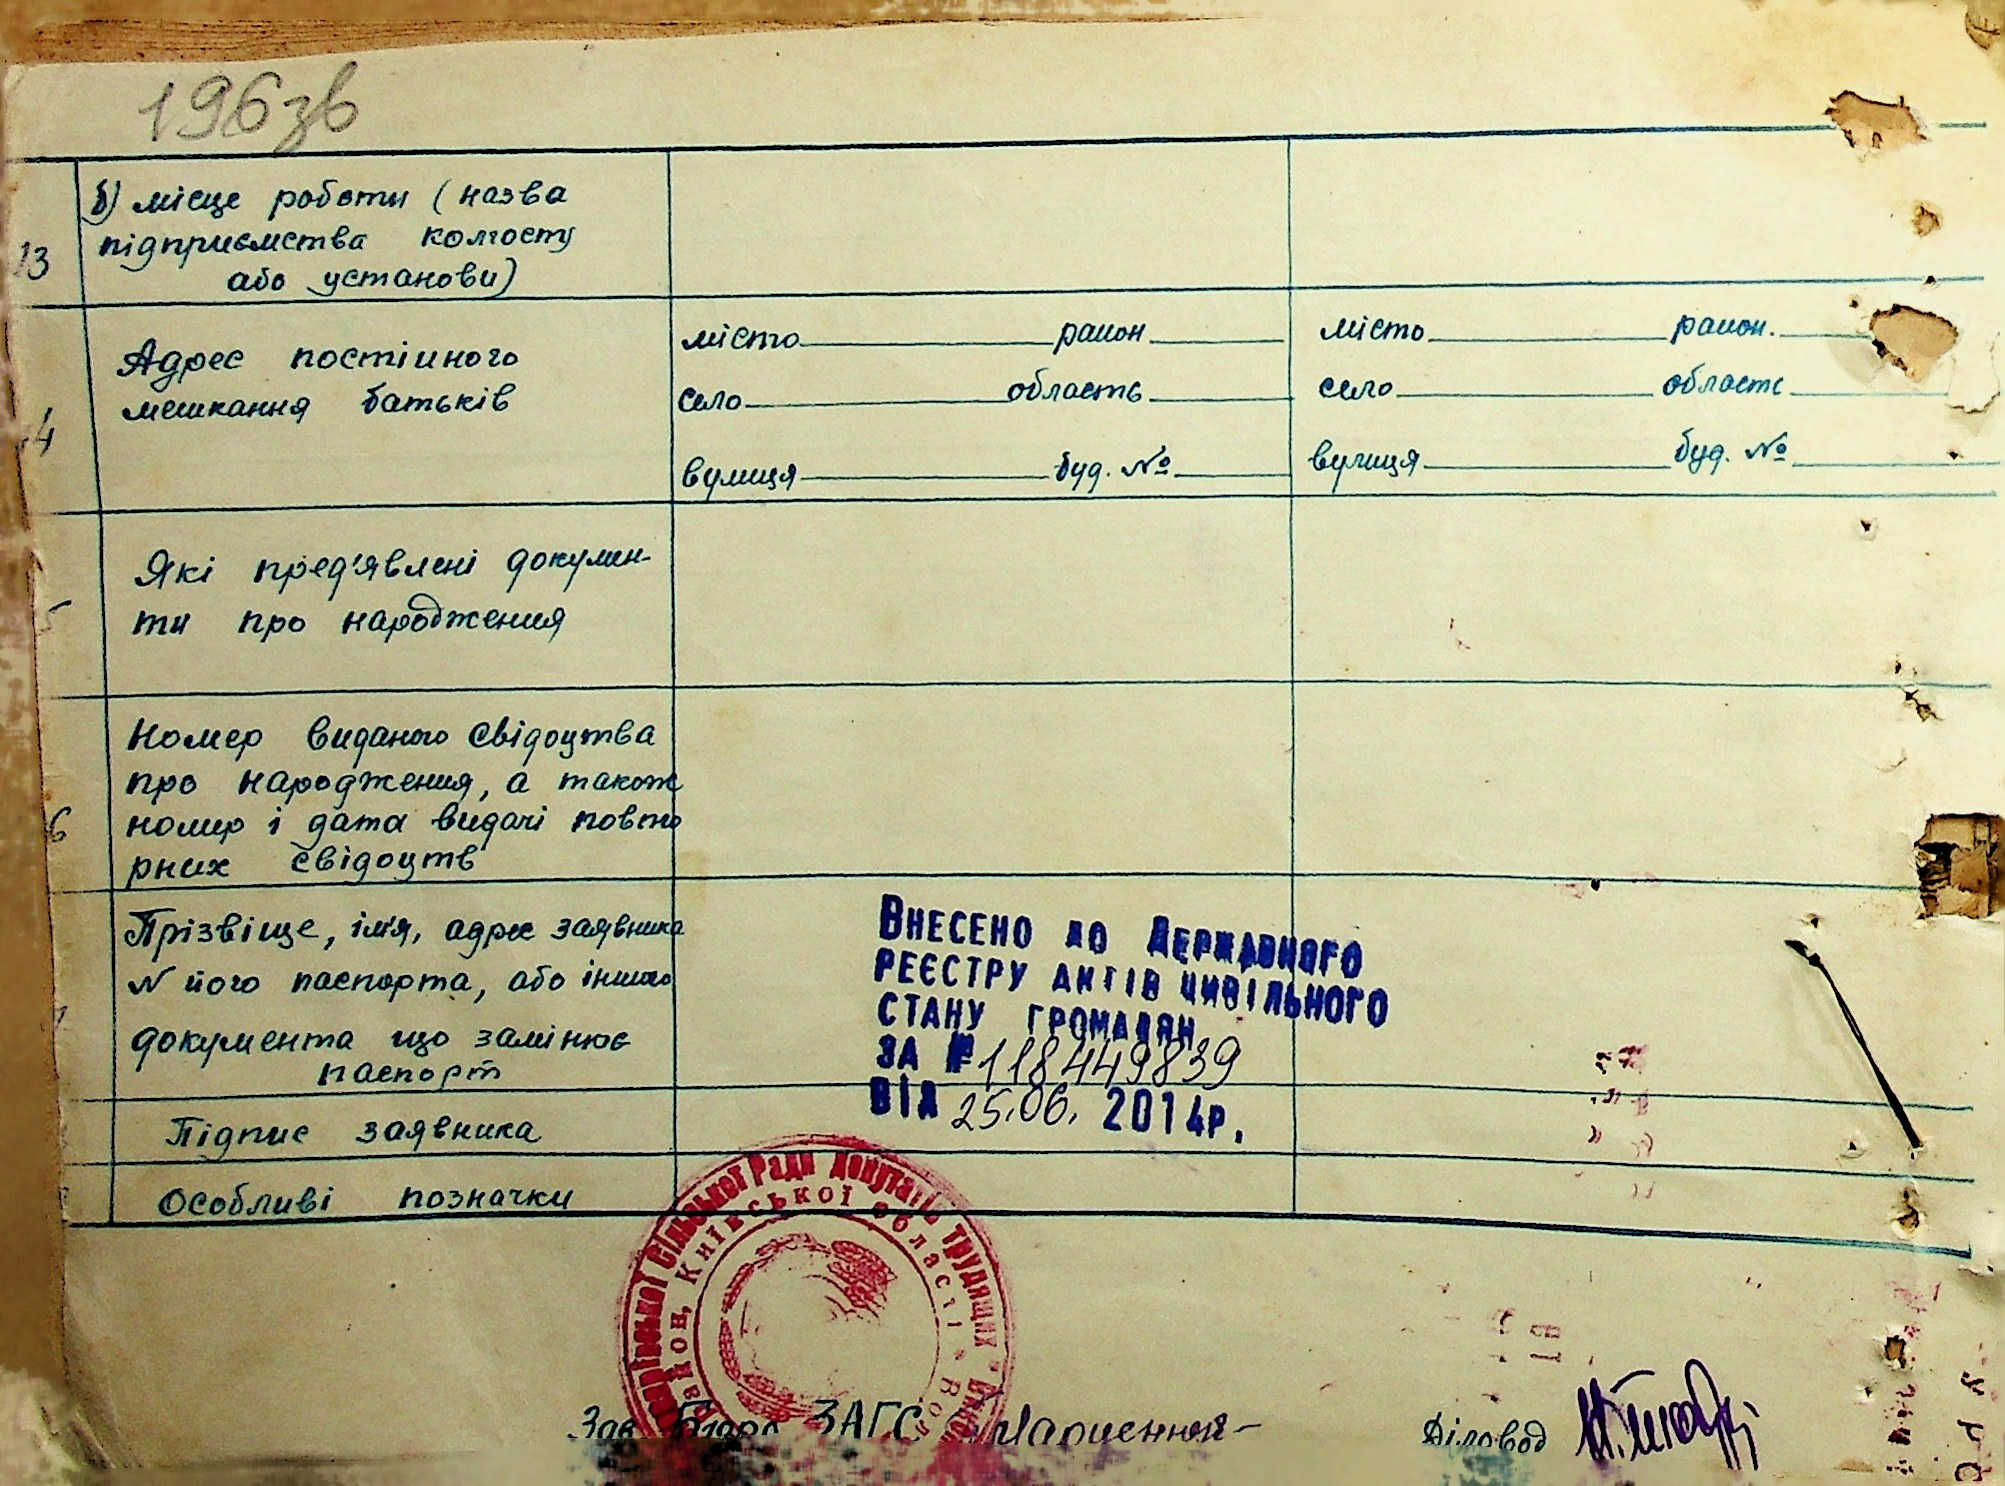 196 зв
13
б) місце роботи (назва
підприємства колгоспу
або установи)
4
Адрес постійного
мешкання батьків
місто район
село область
вулиця буд. №
місто район.
село область
вулиця буд. №
5
Які пред'явлені докумен-
ти про народження
6
Номер виданого свідоцтва
про народження, а також
номер і дата видачі повто
рних свідоцтв
Прізвіще, ім'я, адрес заявника
N його паспорта, або іншого
документа що замінює
паспорт
Підпис заявника
Особливі позначки
ВНЕСЕНО ДО ДЕРЖАВНОГО
РЕЄСТРУ АКТІВ ЦИВІЛЬНОГО
СТАНУ ГРОМАДЯН
ЗА № 118449839
ВІД 25.06. 2014р.
Сільської Ради депутатів трудящих
район, Київської області
Зав. Бюро ЗАГС
Діловод